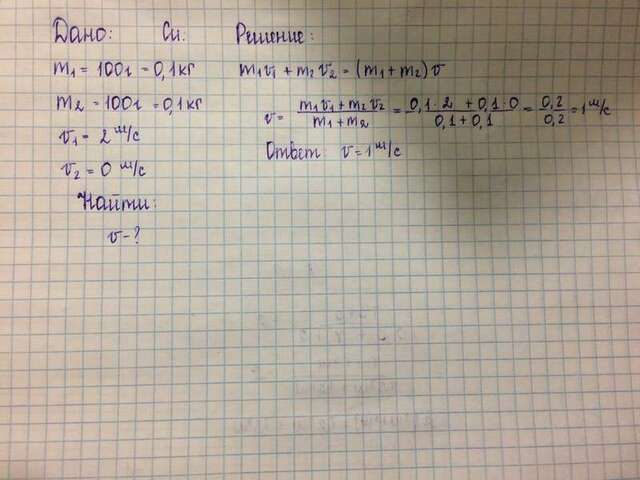 Дано: Си:
m₁ = 100г = 0,1кг
m₂ = 100г = 0,1кг
v₁ = 2 м/с
v₂ = 0 м/с
Найти:
v - ?
Решение:
m₁v₁ + m₂v₂ = (m₁ + m₂)v
v = (m₁v₁ + m₂v₂)/(m₁ + m₂) = (0,1 · 2 + 0,1 · 0)/(0,1 + 0,1) = 0,2/0,2 = 1 м/с
Ответ: v = 1 м/с